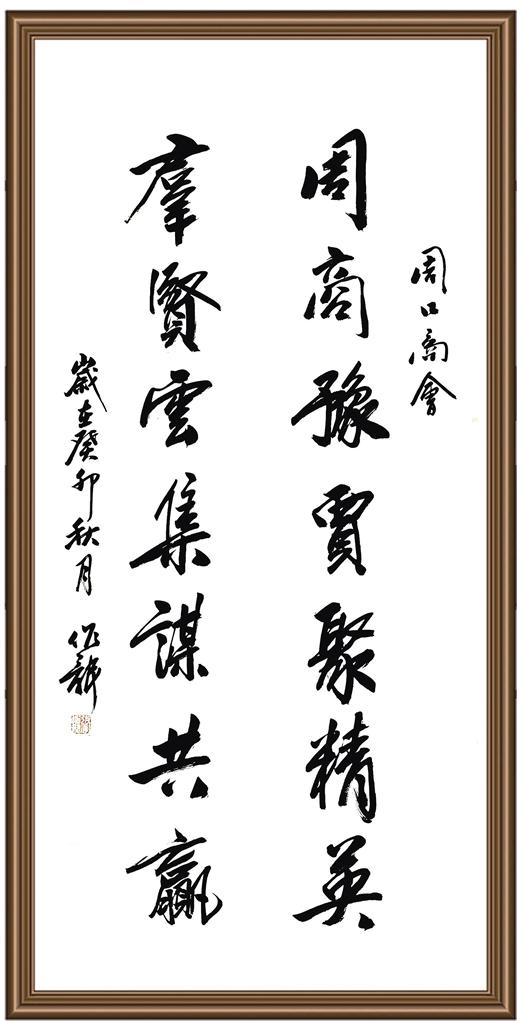 周口商會
周商豫賈聚精英
羣賢雲集謀共贏
歲在癸卯秋月